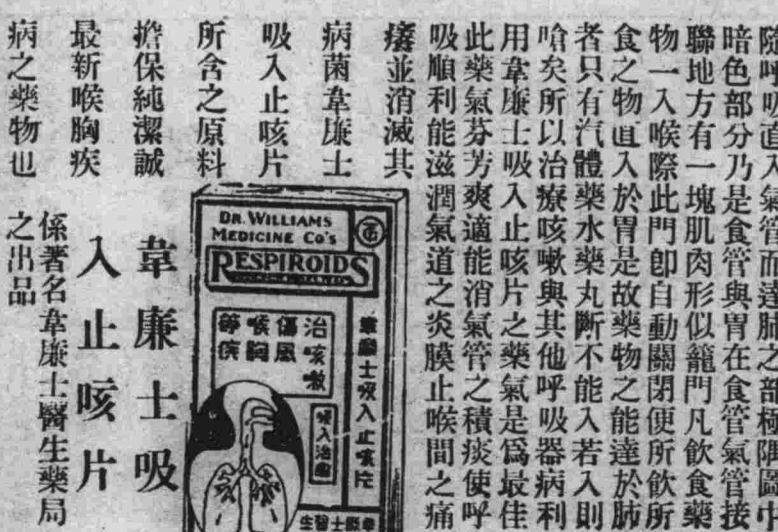 隨呼吸直入氣管而達肺之部極隅圖中
暗色部分乃是食管與胃在食管氣管接
聯地方有一塊肌肉形似籠門凡飲食藥
物一入喉際此門卽自動關閉便所飲所
食之物直入於胃是故藥物之能達於肺
者只有汽體藥水藥丸斷不能入若入則
嗆矣所以治療咳嗽與其他呼吸器病利
用韋廉士吸入止咳片之藥氣是爲最佳
此藥氣芬芳爽適能消氣管之積痰使呼
吸順利能滋潤氣道之炎膜止喉間之痛
癢並消滅其
病菌韋廉士
吸入止咳片
所含之原料
擔保純潔誠
最新喉胸疾
病之藥物也
DR. WILLIAMS
MEDICINE CO'S
RESPIROIDS
治咳嗽
傷風
喉胸
等病
吸入治療
韋廉士吸入止咳片
韋廉士醫生
韋廉士吸
入止咳片
係著名韋廉士醫生藥局
之出品